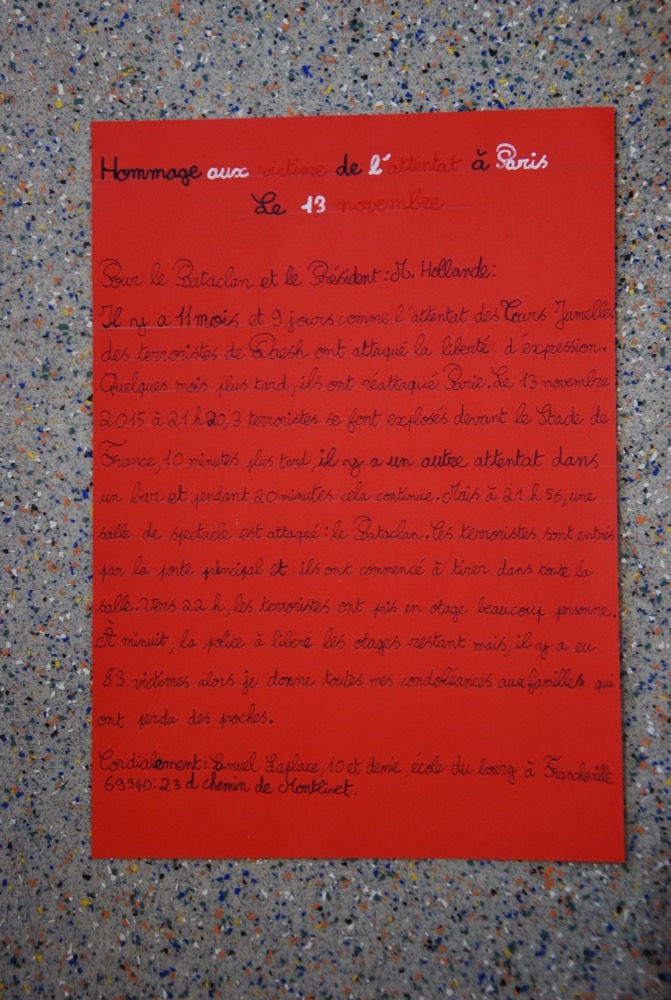 Hommage aux victime de l'attentat à Paris
Le 13 novembre
Pour le Bataclan et le Président : M. Hollande :
Il y a 11 mois et 9 jours comme l'attentat des Tours Jumelles
des terroristes de Daesh ont attaqué la liberté d'expression.
Quelques mois plus tard, ils ont réattaqué Paris. Le 13 novembre
2015 à 21 h 20, 3 terroristes se font explosés devant le Stade de
France, 10 minutes plus tard, il y a un autre attentat dans
un bar et pendant 20 minutes cela continue. Mais à 21 h 56, une
salle de spectacle est attaqué : le Bataclan. Ces terroristes sont entrés
par la porte principal et ils ont commencé à tirer dans toute la
salle. Vers 22 h, les terroristes ont pris en otage beaucoup personne.
À minuit, la police à libéré les otages restant mais, il y a eu
83 victimes alors je donne toutes mes condoléances aux familles qui
ont perdu des proches.
Cordialement : Samuel Laplace, 10 et demie, école du bourg à Francheville
69340 : 23 d chemin de